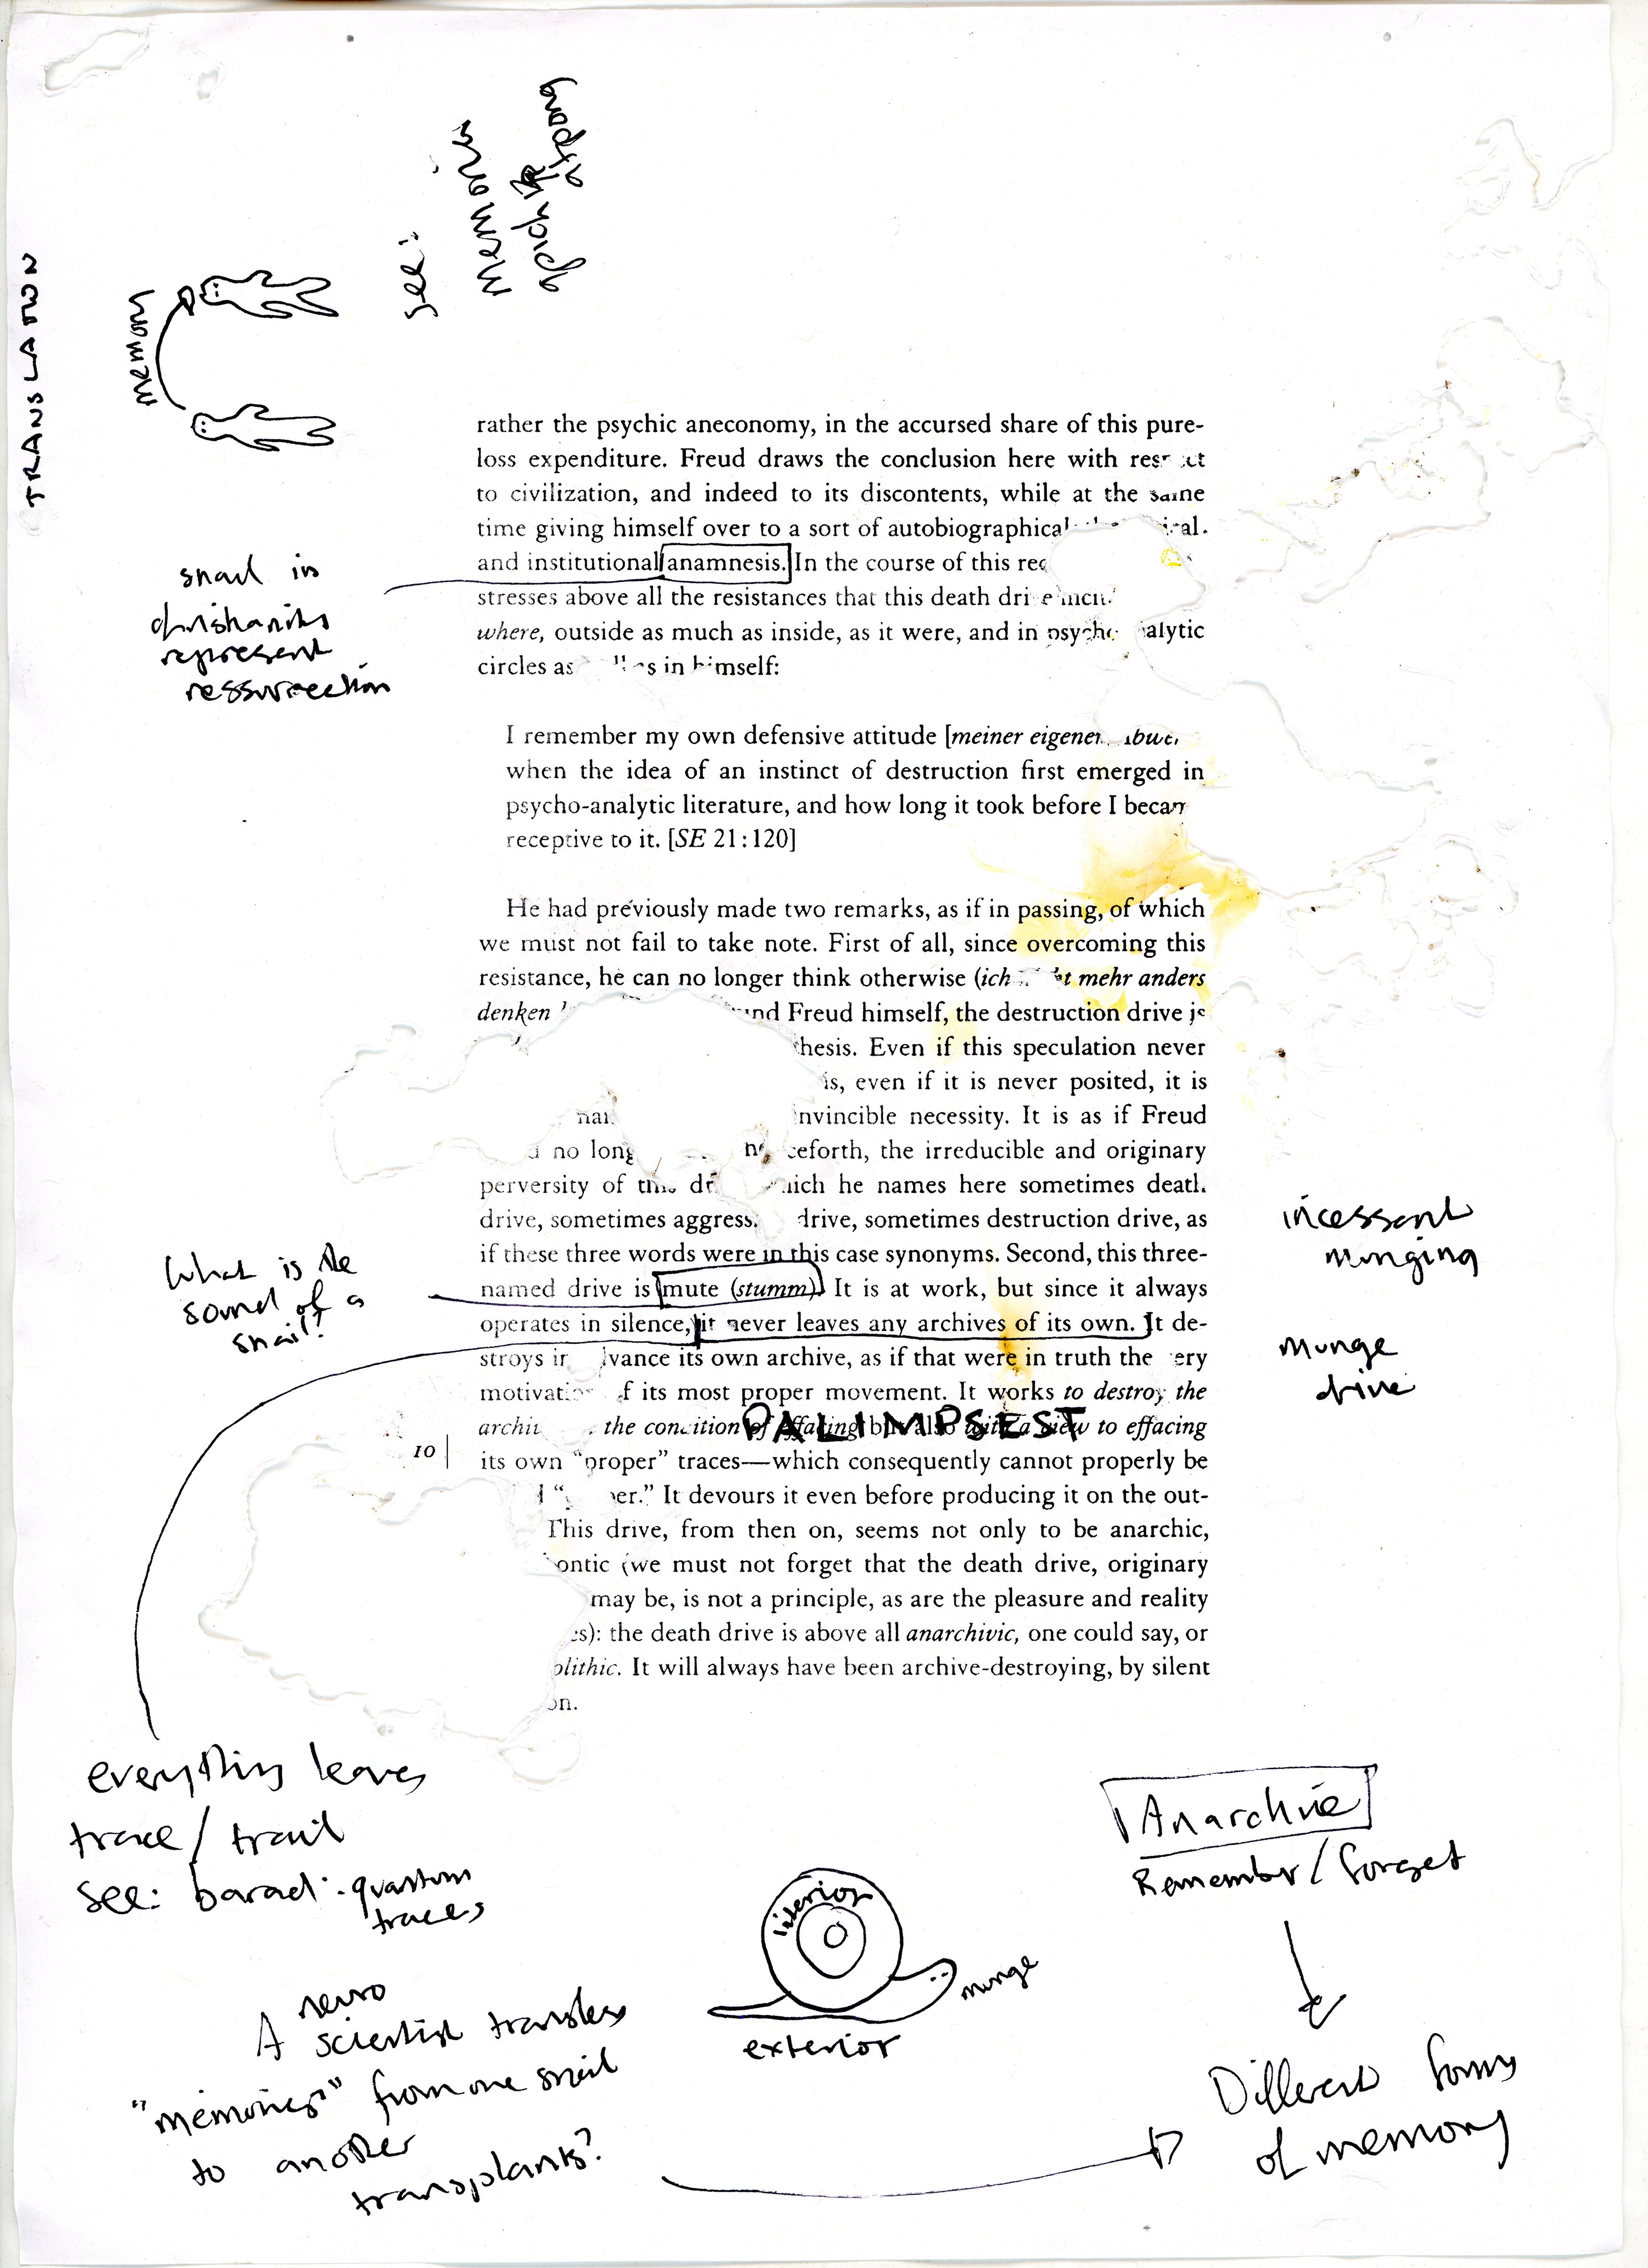 TRANSLATION
memory
see:
memories
rather the psychic aneconomy, in the accursed share of this pure-
loss expenditure. Freud draws the conclusion here with
to civilization, and indeed to its discontents, while at the same
time giving himself over to a sort of autobiographical
and institutional anamnesis. In the course of this
stresses above all the resistances that this death
where, outside as much as inside, as it were, and in
circles as in himself:
snail in
christianity
represent
ressurrection
I remember my own defensive attitude [meiner eigenen
when the idea of an instinct of destruction first emerged in
psycho-analytic literature, and how long it took before I
receptive to it. [SE 21:120]
He had previously made two remarks, as if in passing, of which
we must not fail to take note. First of all, since overcoming this
resistance, he can no longer think otherwise (ich mehr anders
denken Freud himself, the destruction drive is
Even if this speculation never
is, even if it is never posited, it is
invincible necessity. It is as if Freud
no the irreducible and originary
perversity of which he names here sometimes death
drive, sometimes drive, sometimes destruction drive, as
if these three words were in this case synonyms. Second, this three-
named drive is mute (stumm). It is at work, but since it always
operates in silence, it never leaves any archives of its own. It de-
stroys its own archive, as if that were in truth the
of its most proper movement. It works to destroy the
the condition of effacing but also with a view to effacing
PALIMPSEST
its own "proper" traces—which consequently cannot properly be
It devours it even before producing it on the out-
This drive, from then on, seems not only to be anarchic,
(we must not forget that the death drive, originary
may be, is not a principle, as are the pleasure and reality
the death drive is above all anarchivic, one could say, or
It will always have been archive-destroying, by silent
10
What is the
sound of a
snail?
incessant
munging
munge
drive
everything leaves
trace / trail
see: barad: quantum
traces
A neuro
scientist transfers
"memories" from one snail
to another
transplants?
interior
munge
exterior
Anarchive
Remember / forget
Different forms
of memory